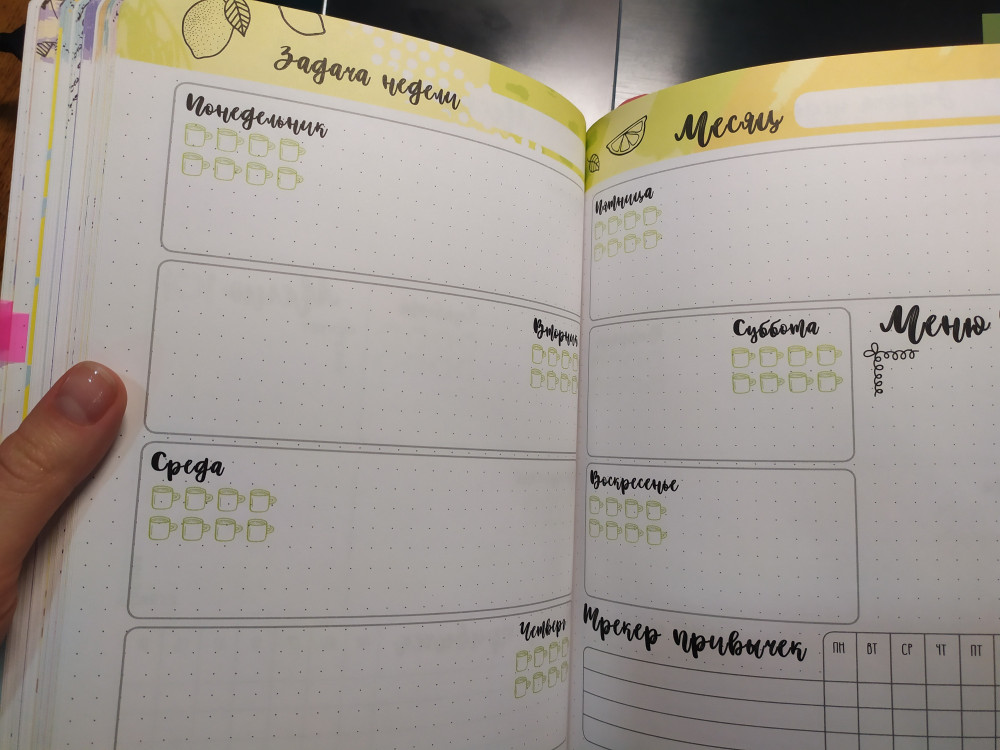 Задача недели
Понедельник
Вторник
Среда
Четверг
Месяц
Пятница
Суббота
Меню
Воскресенье
Трекер привычек
ПН ВТ СР ЧТ ПТ